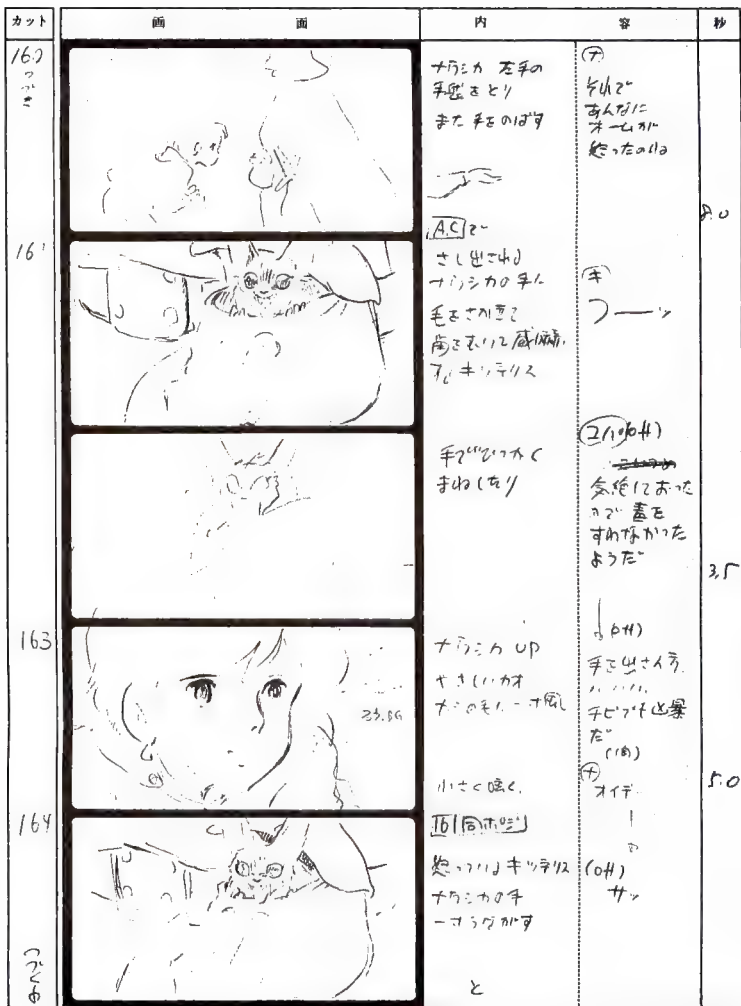 カット
画面
内容
秒
160
つづき
ナウシカ 左手の
手袋をとり
また 手をのばす
ナ
それで
あんなに
オームが
怒ったのね
8.0
161
A.C で
さし出される
ナウシカの手に
毛をさか立て
歯をむいて威嚇
キ
フーッ
手でひっかく
まねしたり
(off)
気絶しておった
ので 毒を
すわなかった
ようだ
3.5
163
ナウシカ UP
やさしいカオ
23.BG
小さく囁く
(off)
手を出さん方が
チビでも凶暴
だ
ナ
オイデ
5.0
164
161 同ポジ
怒っているキツネリス
ナウシカの手
一寸うながす
と
(off)
サッ
つづく